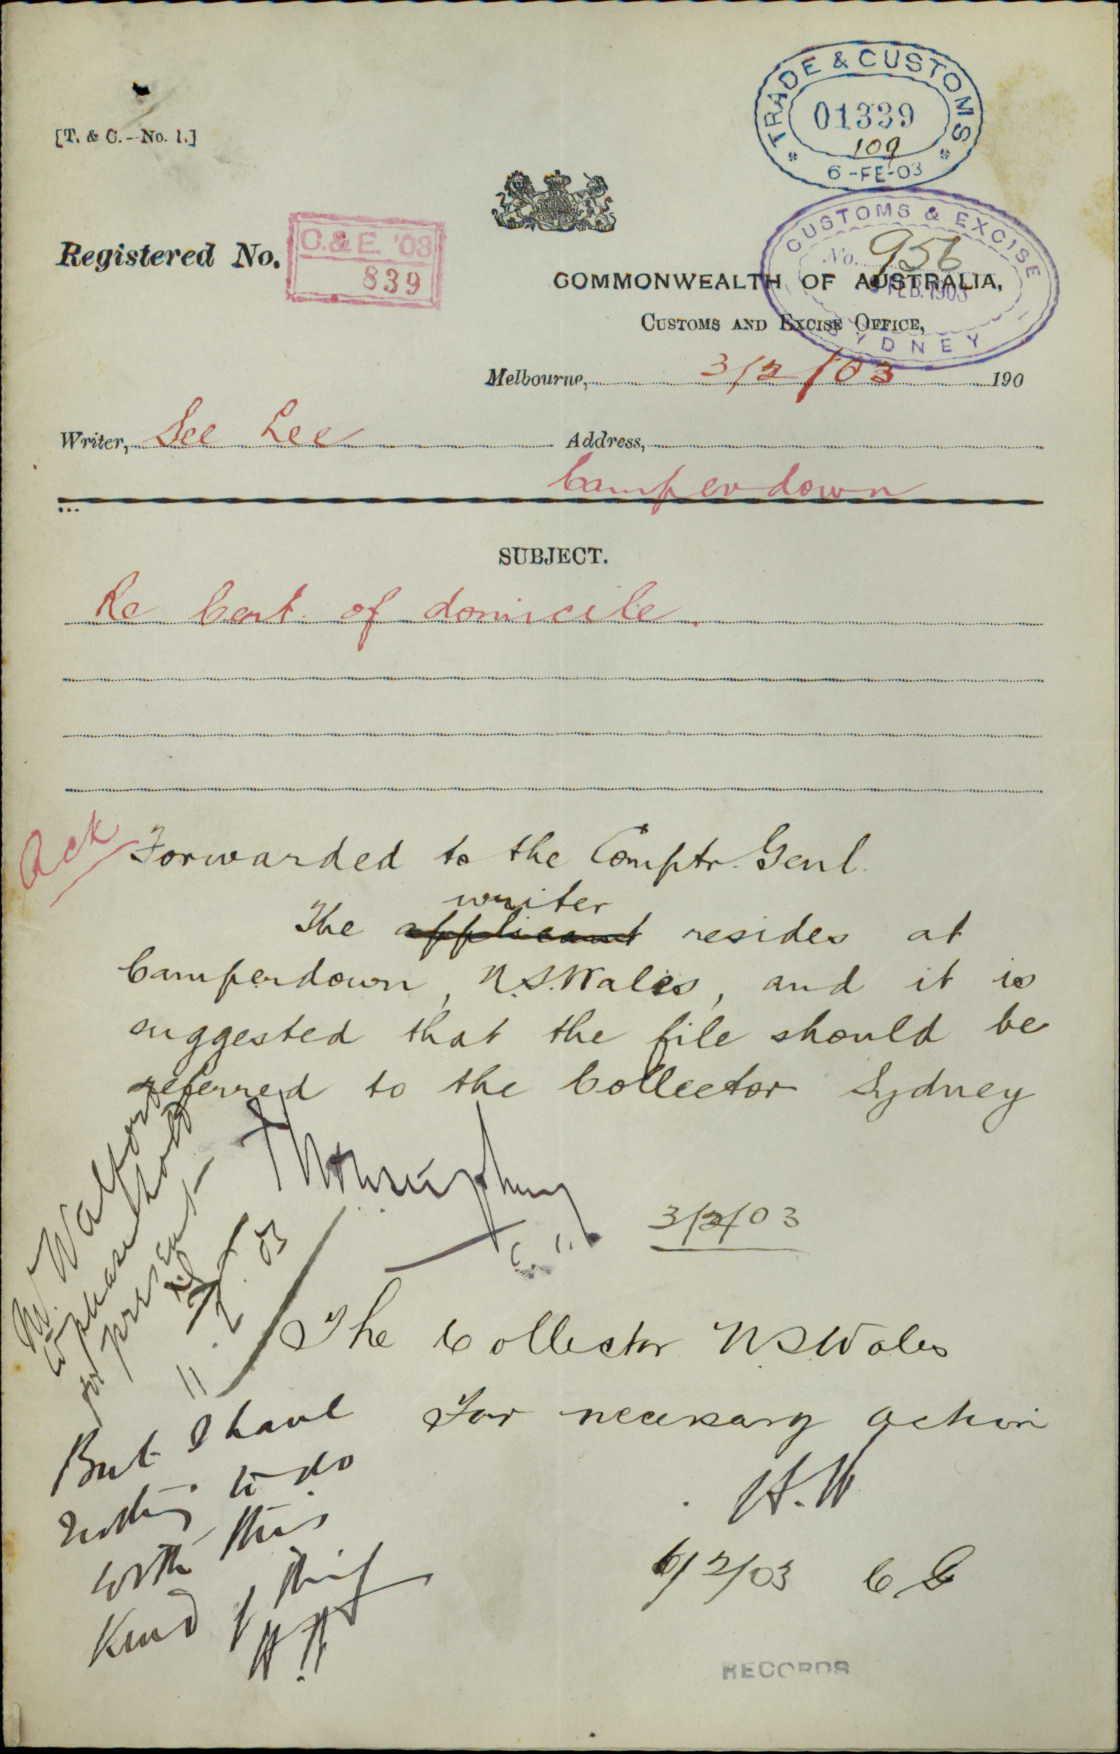 TRADE & CUSTOMS
01339
109
6-FE-03
[T. & C.—No. 1.]
CUSTOMS & EXCISE
No. 956
FEB. 1903
SYDNEY
Registered No.
C. & E. '03
839
COMMONWEALTH OF AUSTRALIA,
CUSTOMS AND EXCISE OFFICE,
Melbourne, 3/2/03 190
Writer, See Lee Address,
Camperdown
SUBJECT.
Re Cert. of domicile.
Ack
Forwarded to the Comptr. Genl.
writer
The applicant resides at
Camperdown, N.S.Wales, and it is
suggested that the file should be
referred to the Collector Sydney
3/2/03
M. Walford
to please hold
for present
11.2.03
The Collector N S Wales
For necessary action
H.W
6/2/03 C G
But I have
nothing to do
with this
Kind of thing
RECORDS